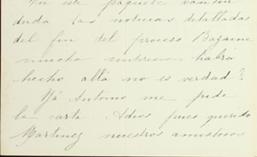 En este paquete van sin
duda las noticias detalladas
del fin del proceso Bazaine
mucha impresion habrá
hecho allá no es verdad?
Ya Antonio me pide
la carta. Adios pues querido
Martinez nuestros